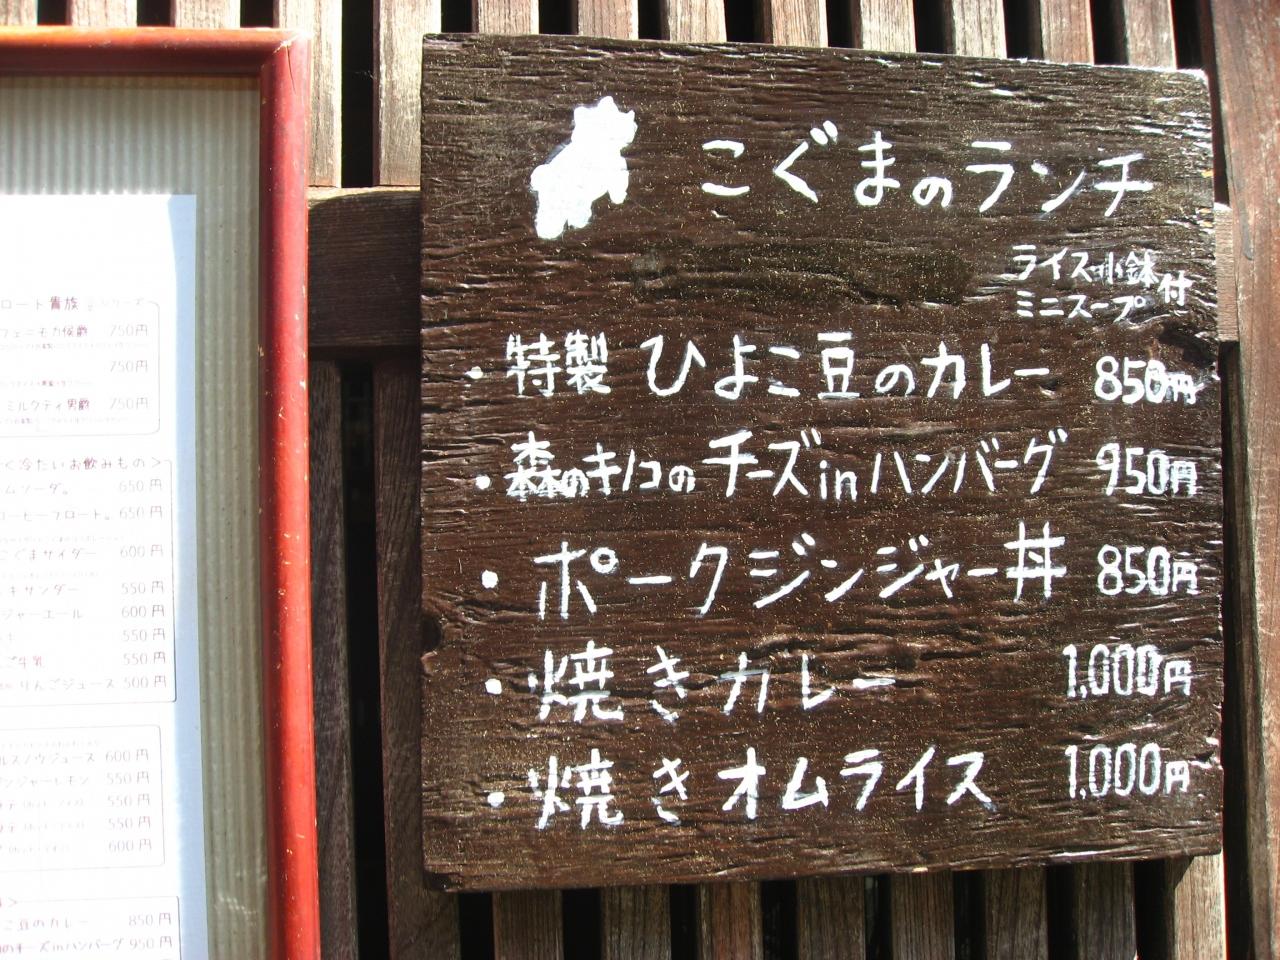 こぐまのランチ
ライス小鉢
ミニスープ付
・特製 ひよこ豆のカレー 850円
・森のキノコのチーズinハンバーグ 950円
・ポークジンジャー丼 850円
・焼きカレー 1,000円
・焼きオムライス 1,000円
ロート貴族
フェニモカ侯爵 750円
750円
ミルクティ男爵 750円
冷たいお飲みもの>
ムソーダ。 650円
コーヒーフロート。650円
こぐまサイダー 600円
キサンダー 550円
ジャーエール 600円
550円
牛乳 550円
りんごジュース 500円
ジュース 600円
ジンジャーレモン 550円
550円
550円
600円
こ豆のカレー 850円
のチーズinハンバーグ 950円